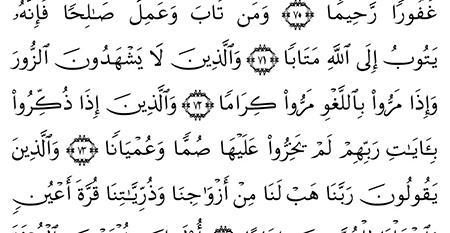 غَفُورًا رَّحِيمًا ﴿٧٠﴾ وَمَن تَابَ وَعَمِلَ صَـٰلِحًا فَإِنَّهُۥ
يَتُوبُ إِلَى ٱللَّهِ مَتَابًا ﴿٧١﴾ وَٱلَّذِينَ لَا يَشْهَدُونَ ٱلزُّورَ
وَإِذَا مَرُّوا۟ بِٱللَّغْوِ مَرُّوا۟ كِرَامًا ﴿٧٢﴾ وَٱلَّذِينَ إِذَا ذُكِّرُوا۟
بِـَٔايَـٰتِ رَبِّهِمْ لَمْ يَخِرُّوا۟ عَلَيْهَا صُمًّا وَعُمْيَانًا ﴿٧٣﴾ وَٱلَّذِينَ
يَقُولُونَ رَبَّنَا هَبْ لَنَا مِنْ أَزْوَٰجِنَا وَذُرِّيَّـٰتِنَا قُرَّةَ أَعْيُنٍ